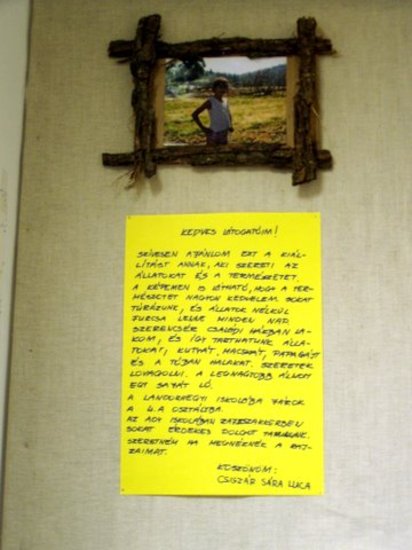 KEDVES LÁTOGATÓIM!
SZÍVESEN AJÁNLOM EZT A KIÁL-
LÍTÁST ANNAK, AKI SZERETI AZ
ÁLLATOKAT ÉS A TERMÉSZETET.
A KÉPEMEN IS LÁTHATÓ, HOGY A TER-
MÉSZETET NAGYON KEDVELEM. SOKAT
TÚRÁZUNK, ÉS ÁLLATOK NÉLKÜL
FURCSA LENNE MINDEN NAP.
SZERENCSÉRE CSALÁDI HÁZBAN LA-
KOM, ÉS ÍGY TARTHATUNK ÁLLA-
TOKAT; KUTYÁT, MACSKÁT, PAPAGÁJT
ÉS A TÓBAN HALAKAT. SZERETEK
LOVAGOLNI. A LEGNAGYOBB ÁLMOM
EGY SAJÁT LÓ.
A LANDORHEGYI ISKOLÁBA JÁROK
A 4.A OSZTÁLYBA.
AZ ADY ISKOLÁBAN RAJZSZAKKÖRBEN
SOKAT, ÉRDEKES DOLGOT TANULUNK.
SZERETNÉM HA MEGNÉZNÉK A RAJ-
ZAIMAT.
KÖSZÖNÖM:
CSISZÁR SÁRA LUCA